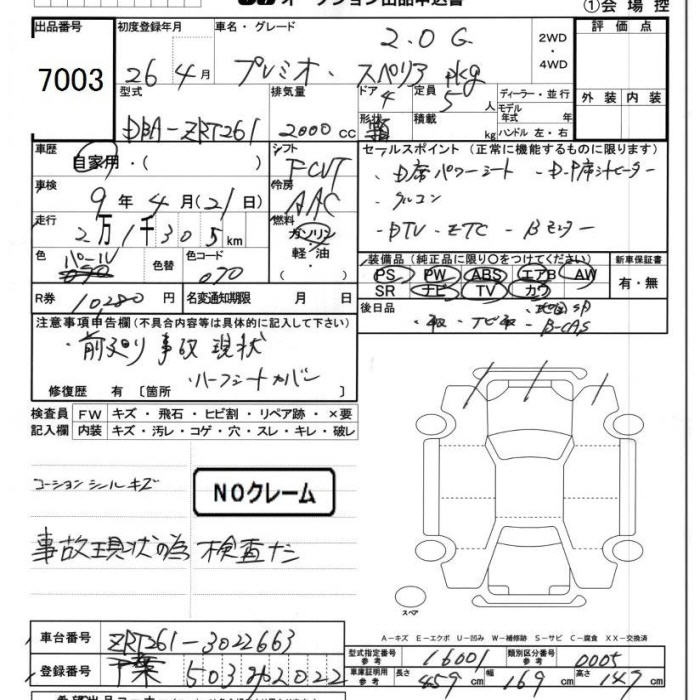 オークション出品申込書
①会場控
出品番号 初度登録年月 車名・グレード 評価点
7003 26年4月 プレミオ・スペリア pkg 2.0G 2WD・4WD
外装 内装
型式 排気量 ドア 定員 ディーラー・並行
DBA-ZRT261 2000cc 4 5人 モデル年式 年
形状 積載 kg ハンドル 左・右
車歴 シフト セールスポイント (正常に機能するものに限ります)
自家用・( ) FCVT
・D席パワーシート ・D・P席シートヒーター
車検 冷房
9年4月(21日) AAC ・クルコン
走行 燃料
2万1千305km ガソリン・軽・油・( ) ・DTV・ETC・Bモニター
色 色替 色コード 装備品 (純正品に限り○をつけてください) 新車保証書
パール 070 070 PS PW ABS エアB AW 有・無
SR ナビ TV カワ
R券 10280円 名変通知期限 月 日 後日品
注意事項申告欄 (不具合内容等は具体的に記入して下さい) ・B-CAS
・前廻り事故現状
・ハーフシートカバー
修復歴 有 〔箇所 〕
検査員 FW キズ・飛石・ヒビ割・リペア跡・×要
記入欄 内装 キズ・汚レ・コゲ・穴・スレ・キレ・破レ
コーションシールキズ
NOクレーム
事故現状の為 検査ナシ
スペア
A-キズ E-エクボ U-凹み W-補修跡 S-サビ C-腐食 XX-交換済
車台番号 ZRT261-3022663
型式指定番号 参考 16001 類別区分番号 参考 0005
登録番号 千葉 503
車庫証明用 参考 長さ 459cm 幅 169cm 高さ 149cm